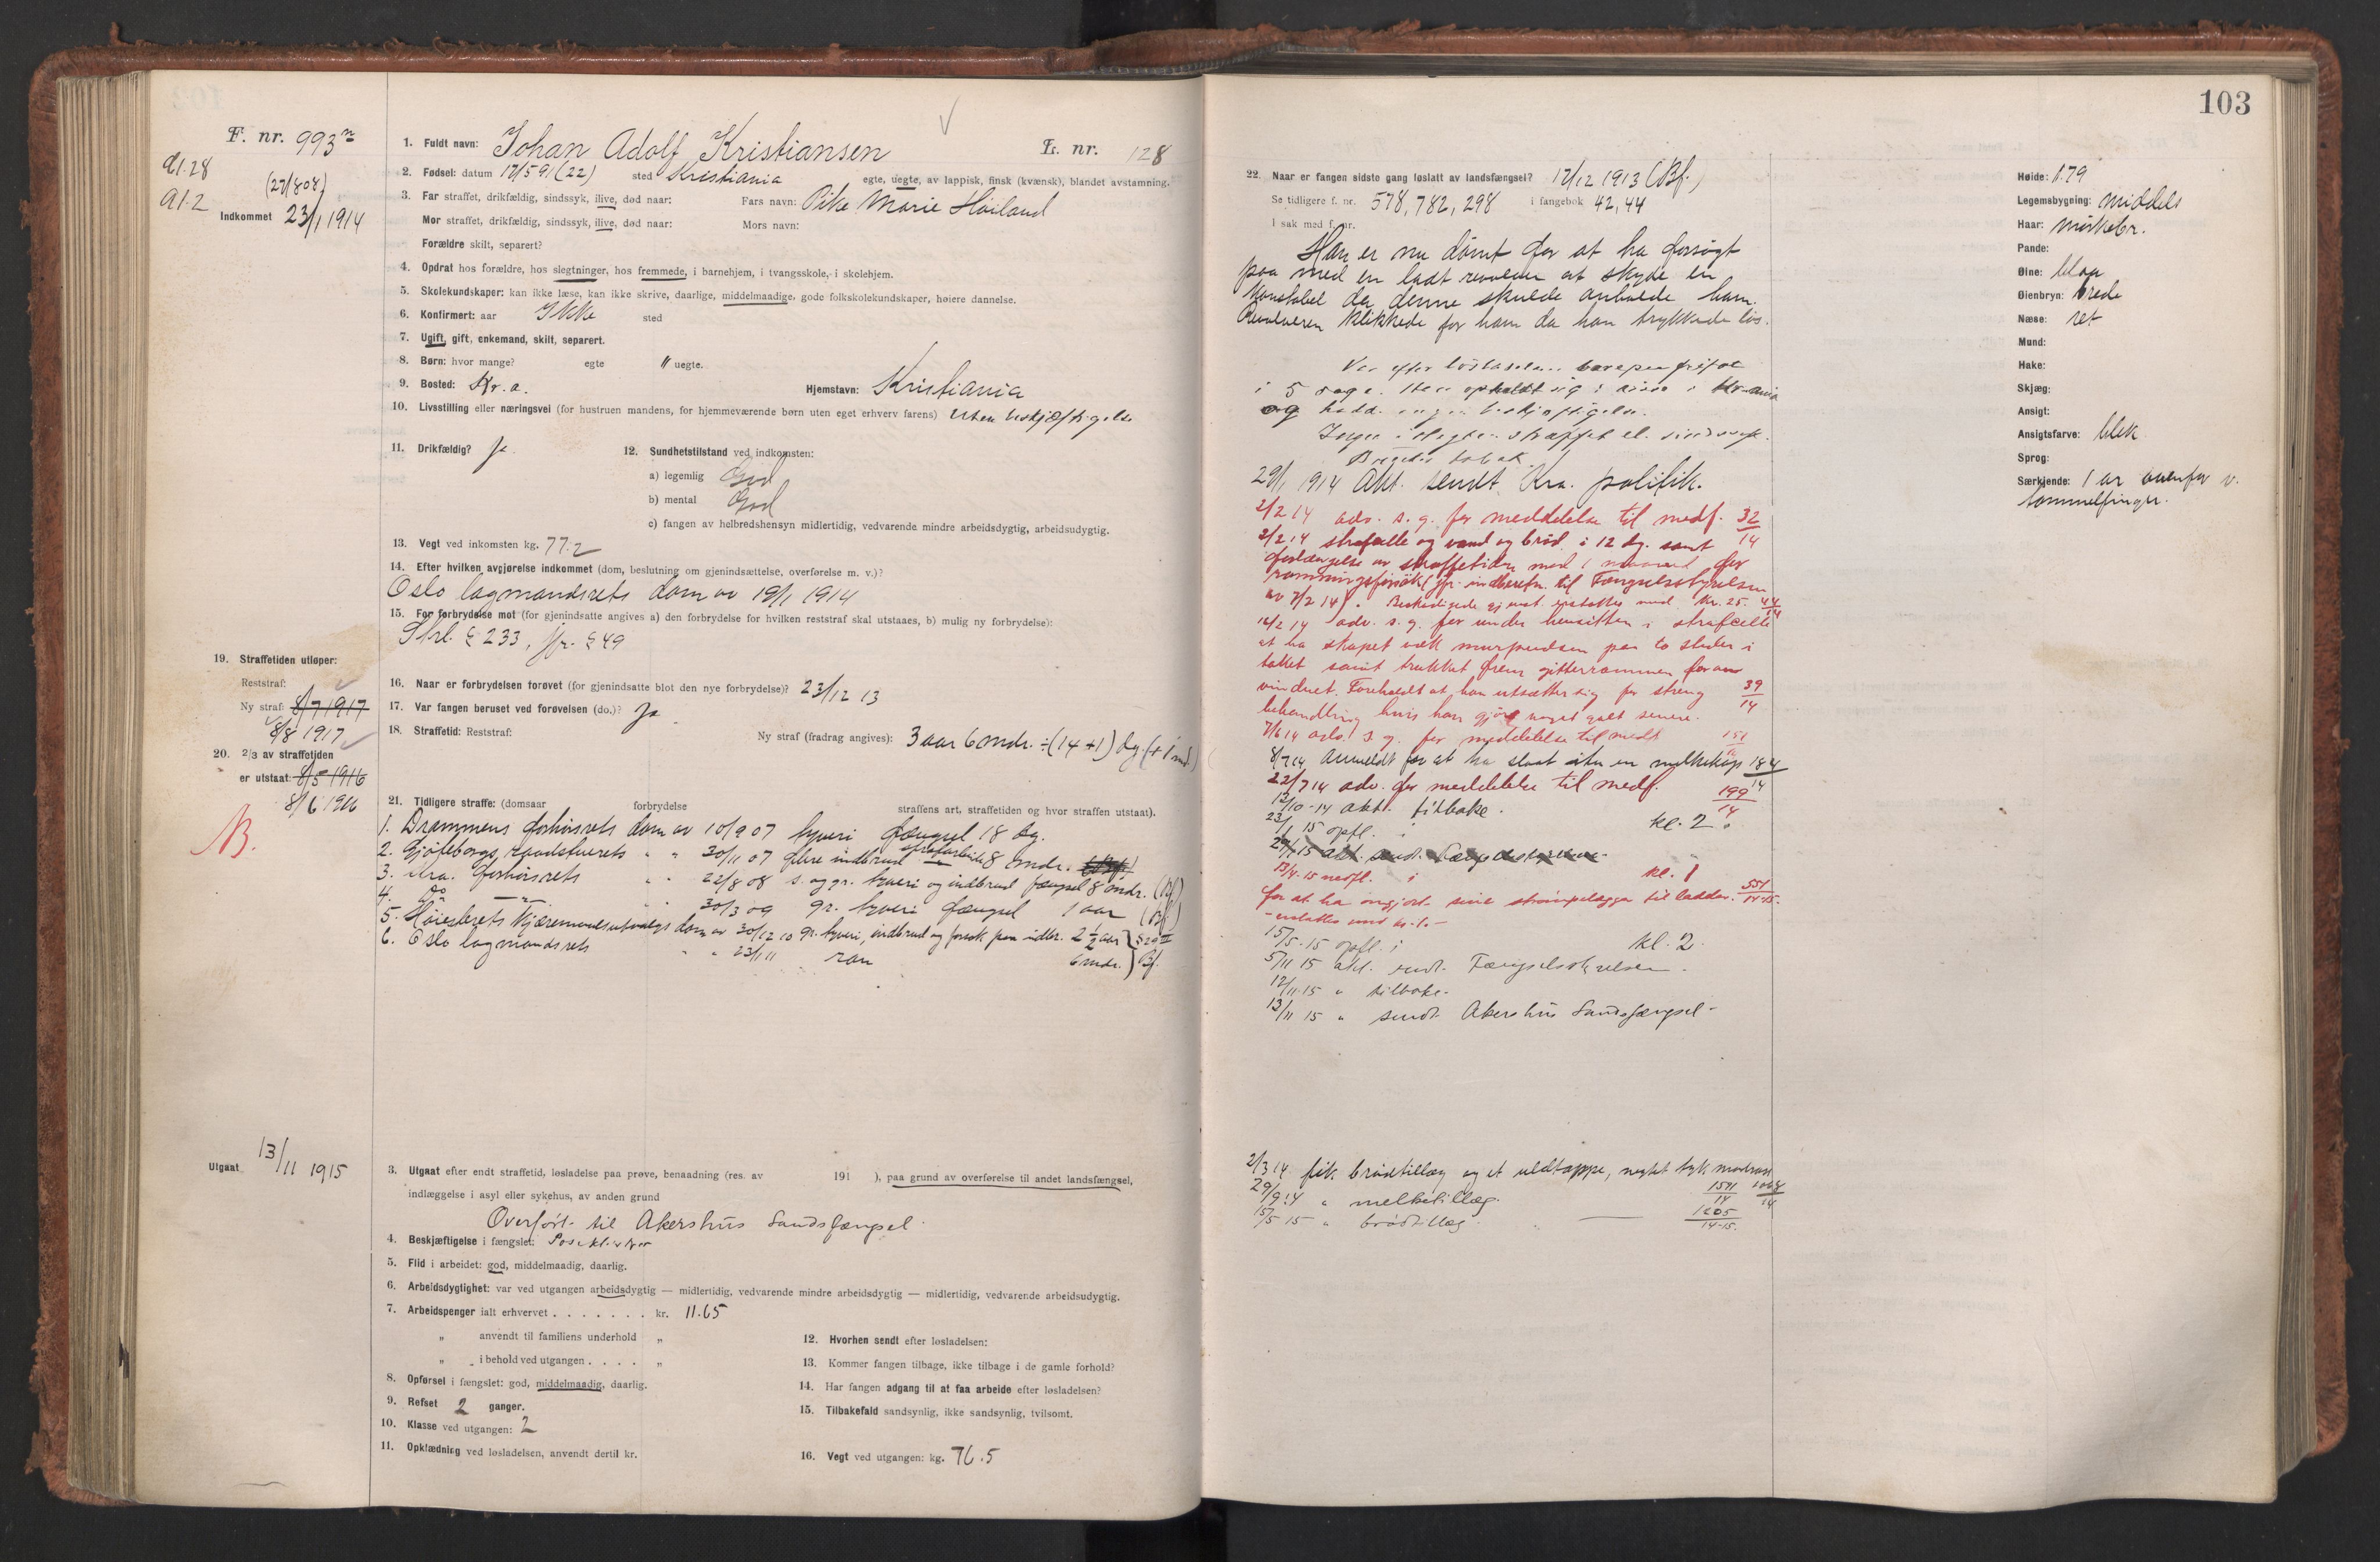 F. nr. 993
Kl. 28
Al. 2
(27/8 08)
Indkommet 23/1 1914
1. Fuldt navn: Johan Adolf Kristiansen
L. nr. 128
2. Fødsel: datum 17/5 91 (22) sted Kristiania egte, uegte, av lappisk, finsk (kvænsk), blandet avstamning.
3. Far straffet, drikfældig, sindssyk, ilive, død naar: Fars navn: Pike Marie Höiland
Mor straffet, drikfældig, sindssyk, ilive, død naar: Mors navn:
Forældre skilt, separert?
4. Opdrat hos forældre, hos slegtninger, hos fremmede, i barnehjem, i tvangsskole, i skolehjem.
5. Skolekundskaper: kan ikke læse, kan ikke skrive, daarlige, middelmaadige, gode folkskolekundskaper, høiere dannelse.
6. Konfirmert: aar Ikke sted
7. Ugift, gift, enkemand, skilt, separert.
8. Børn: hvor mange? egte " uegte.
9. Bosted: Kr.a. Hjemstavn: Kristiania
10. Livsstilling eller næringsvei (for hustruen mandens, for hjemmeværende børn uten eget erhverv farens) Uten beskjæftigelse
11. Drikfældig? Ja. 12. Sundhetstilstand ved indkomsten:
a) legemlig God
b) mental God
c) fangen av helbredshensyn midlertidig, vedvarende mindre arbeidsdygtig, arbeidsudygtig.
13. Vegt ved inkomsten kg. 77.2
14. Efter hvilken avgjørelse indkommet (dom, beslutning om gjenindsættelse, overførelse m. v.)?
Oslo lagmandsrets dom av 19/1 1914
15. For forbrydelse mot (for gjenindsatte angives a) den forbrydelse for hvilken reststraf skal utstaaes, b) mulig ny forbrydelse):
Strl. § 233, jfr. § 49
16. Naar er forbrydelsen forøvet (for gjenindsatte blot den nye forbrydelse)? 23/12 13
17. Var fangen beruset ved forøvelsen (do.)? Ja
18. Straffetid: Reststraf: Ny straf (fradrag angives): 3 aar 6 mdr. ÷ (14+1) dg. (+ 1 md)
19. Straffetiden utløper:
Reststraf:
Ny straf: 8/7 1917
8/8 1917
20. 2/3 av straffetiden
er utstaat: 8/5 1916
8/6 1916
21. Tidligere straffe: (domsaar forbrydelse straffens art, straffetiden og hvor straffen utstaat).
1. Drammens forhörsrets dom av 10/9 07 tyveri fængsel 18 dg.
2. Gjøteborgs raadstuerets " " 30/11 07 flere indbrud strafarbeide 8 mdr.
3. Kra. forhörsrets " " 22/8 08 s. og gr. tyveri og indbrud fængsel 8 mdr. (Bf)
4. Do " 30/3 09 gr. tyveri fængsel 1 aar (Bf)
5. Höiesterets Kjæremaalsutvalgs dom av 30/12 10 gr. tyveri, indbrud og forsök paa indbr. 2 1/2 aar
6. Oslo lagmandsrets " " 23/1 11 ran 6 mdr. Bf.
Utgaat 13/11 1915
3. Utgaat efter endt straffetid, løsladelse paa prøve, benaadning (res. av 191 ), paa grund av overførelse til andet landsfængsel,
indlæggelse i asyl eller sykehus, av anden grund
Overført til Akershus Landsfængsel.
4. Beskjæftigelse i fængslet:
5. Flid i arbeidet: god, middelmaadig, daarlig.
6. Arbeidsdygtighet: var ved utgangen arbeidsdygtig — midlertidig, vedvarende mindre arbeidsdygtig — midlertidig, vedvarende arbeidsudygtig.
7. Arbeidspenger ialt erhvervet . . . . . . . kr. 11.65
" anvendt til familiens underhold "
" i behold ved utgangen . . . . "
8. Opførsel i fængslet: god, middelmaadig, daarlig.
9. Refset 2 ganger.
10. Klasse ved utgangen: 2
11. Opklædning ved løsladelsen, anvendt dertil kr.
12. Hvorhen sendt efter løsladelsen:
13. Kommer fangen tilbage, ikke tilbage i de gamle forhold?
14. Har fangen adgang til at faa arbeide efter løsladelsen?
15. Tilbakefald sandsynlig, ikke sandsynlig, tvilsomt.
16. Vegt ved utgangen: kg. 76.5
103
22. Naar er fangen sidste gang løslatt av landsfængsel? 17/12 1913 (Bf.)
Se tidligere f. nr. 578, 782, 298 i fangebok 42, 44
I sak med f. nr.
Han er nu dömt for at ha forsögt
paa med en ladt revolver at skyde en
Konstabel da denne skulde anholde ham.
Revolveren klikkede for ham da han trykkede lös.
Var efter löslatelsen bare paa frifot
i 5 dage. Han opholdt sig i disse i Kr.ania
og hadde ingen beskjæftigelse.
Ingen i slegten straffet el. sindssyk.
Bruger tobak.
29/1 1914 Akt. sendt Kra. politik.
2/2 14 adv. s. g. for meddelelse til medf. 32/14
7/2 14 strafcelle og vand og bröd i 12 dg. samt
forlængelse av straffetiden med 1 maaned for
römningsforsök (jfr. indberetn. til Fængselsstyrelsen
av 7/2 14). Beskadigede gjenst. erstattes med kr. 25. 44/14
16/2 14 adv. s. g. for under hensitten i strafcelle
at ha skapet væk murpudsen paa to steder i
taket samt trukket frem gitterrammen foran
vinduet. Foreholdt at han utsætter sig for streng 39/14
behandling hvis han gjör noget galt senere.
7/6 14 adv. s. g. for meddelelse til medf. 151/14
8/7 14 anmeldt for at ha slaat itu en melkekop 184/14
22/7 14 adv. for meddelelse til medf. 199/14
12/10-14 akt. tilbake.
23/1 15 opfl. i kl. 2.
29/1 15 akt. sendt Fængselsstyrelsen
13/4-15 nedfl. i kl. 1
for at ha omgjort sine strömpelægger til ladder. 551/14-15.
15/5-15 opfl. i kl. 2.
5/11 15 akt. sendt Fængselsstyrelsen.
12/11-15 " tilbake.
13/11 15 " sendt Akershus Landsfængsel.
2/3 14 fik brödtillæg og et uldtæppe, negtet tyk madrass
29/9 14 " melketillæg. 1571/14 1068/14
15/5-15 " brödtillæg. 1205/14-15.
Høide: 1.79
Legemsbygning: middels
Haar: mörkebr.
Pande:
Øine: blaa
Øienbryn: brede
Næse: ret
Mund:
Hake:
Skjæg:
Ansigt:
Ansigtsfarve: blek
Sprog:
Særkjende: 1 ar ovenfor v.
tommelfinger.